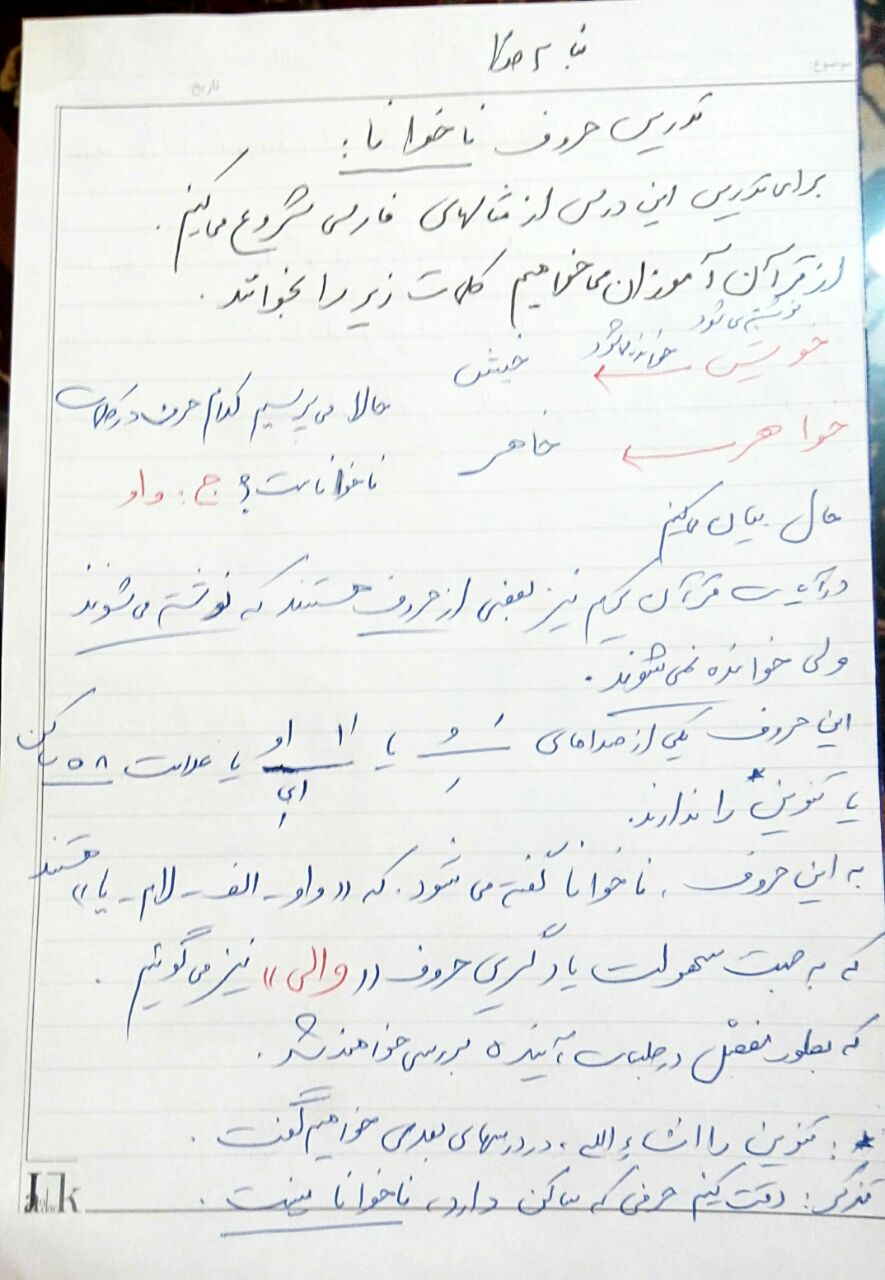 موضوع:
تاریخ:
تدریس حروف ناخوانا:
برای تدریس این درس از مثالهای فارسی شروع می کنیم.
از قرآن آموزان می خواهیم کلمات زیر را بخوانند.
نوشته می شود خوانده می شود
خویش خیش
حالا می پرسیم کدام حرف در کلمات
خواهر خاهر
ناخوانا است؟ ج: واو
حال بیان می کنیم
در آیات قرآن کریم نیز بعضی از حروف هستند که نوشته می شوند
ولی خوانده نمی شوند.
این حروف یکی از صداهای َ ِ ُ یا ا او ای یا علامت ساکن
یا تنوین* را ندارند.
به این حروف، ناخوانا گفته می شود. که «واو - الف - لام - یا» هستند
که به جهت سهولت یادگیری حروف «والی» نیز می گوئیم.
که بطور مفصل در جلسات آینده بررسی خواهند شد.
*: تنوین را انشاءالله، در درسهای بعدی خواهیم گفت.
تذکر: دقت کنیم حرفی که ساکن دارد، ناخوانا نیست.